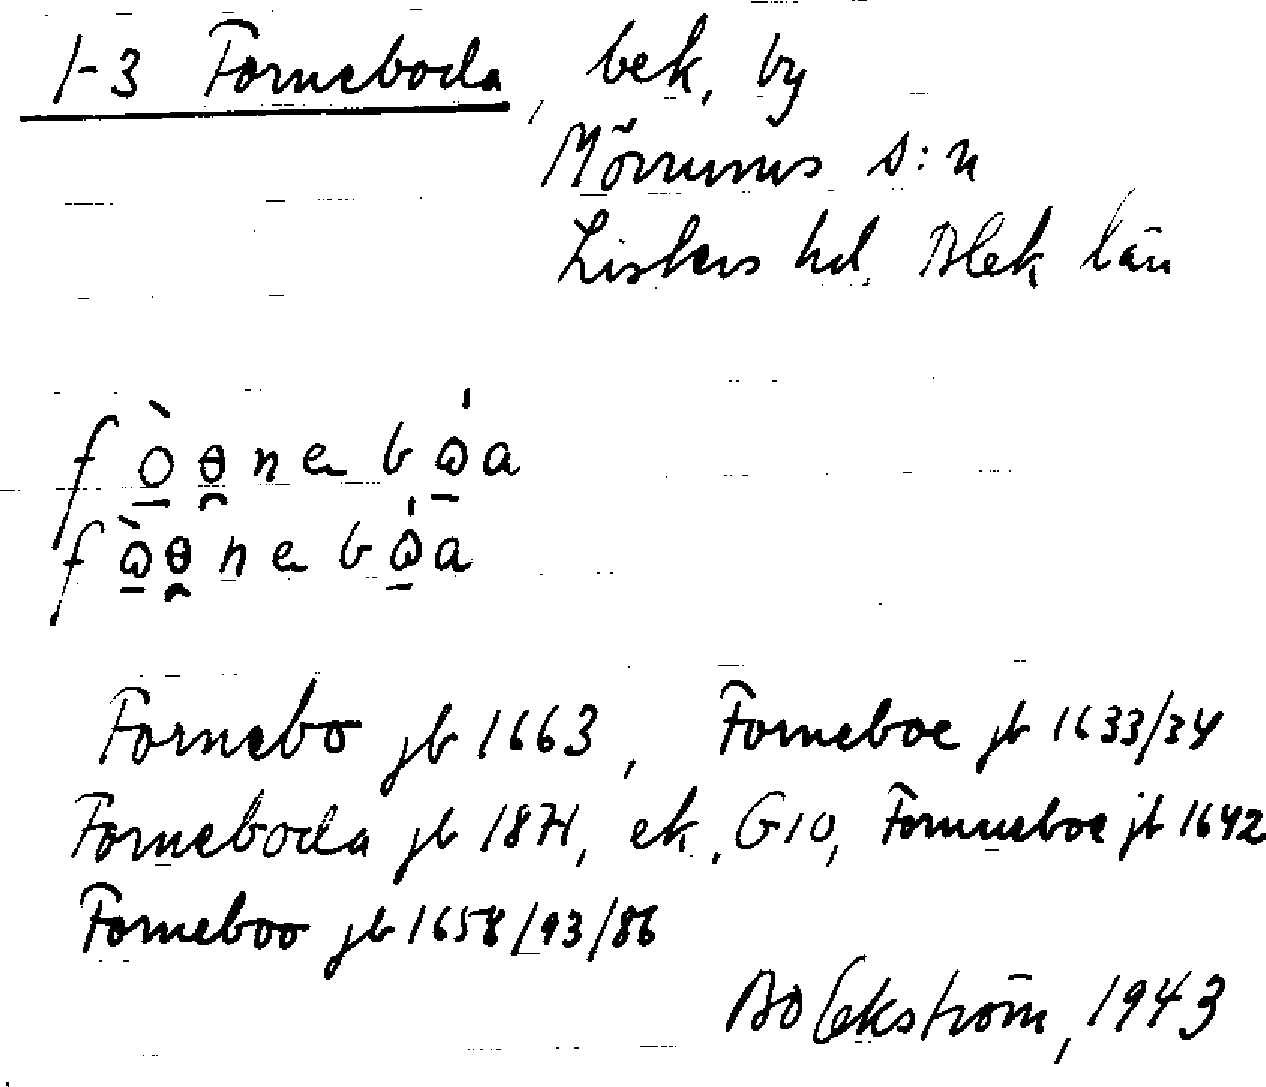 1-3 Forneboda, bek, by
Mörrums s:n
Listers hd. Blek län
Fornebo jb 1663, Forneboe jb 1633/34
Forneboda jb 1871, ek, G10, Fornneboe jb 1642
Forneboo jb 1658/93/86
Bo Ekström, 1943